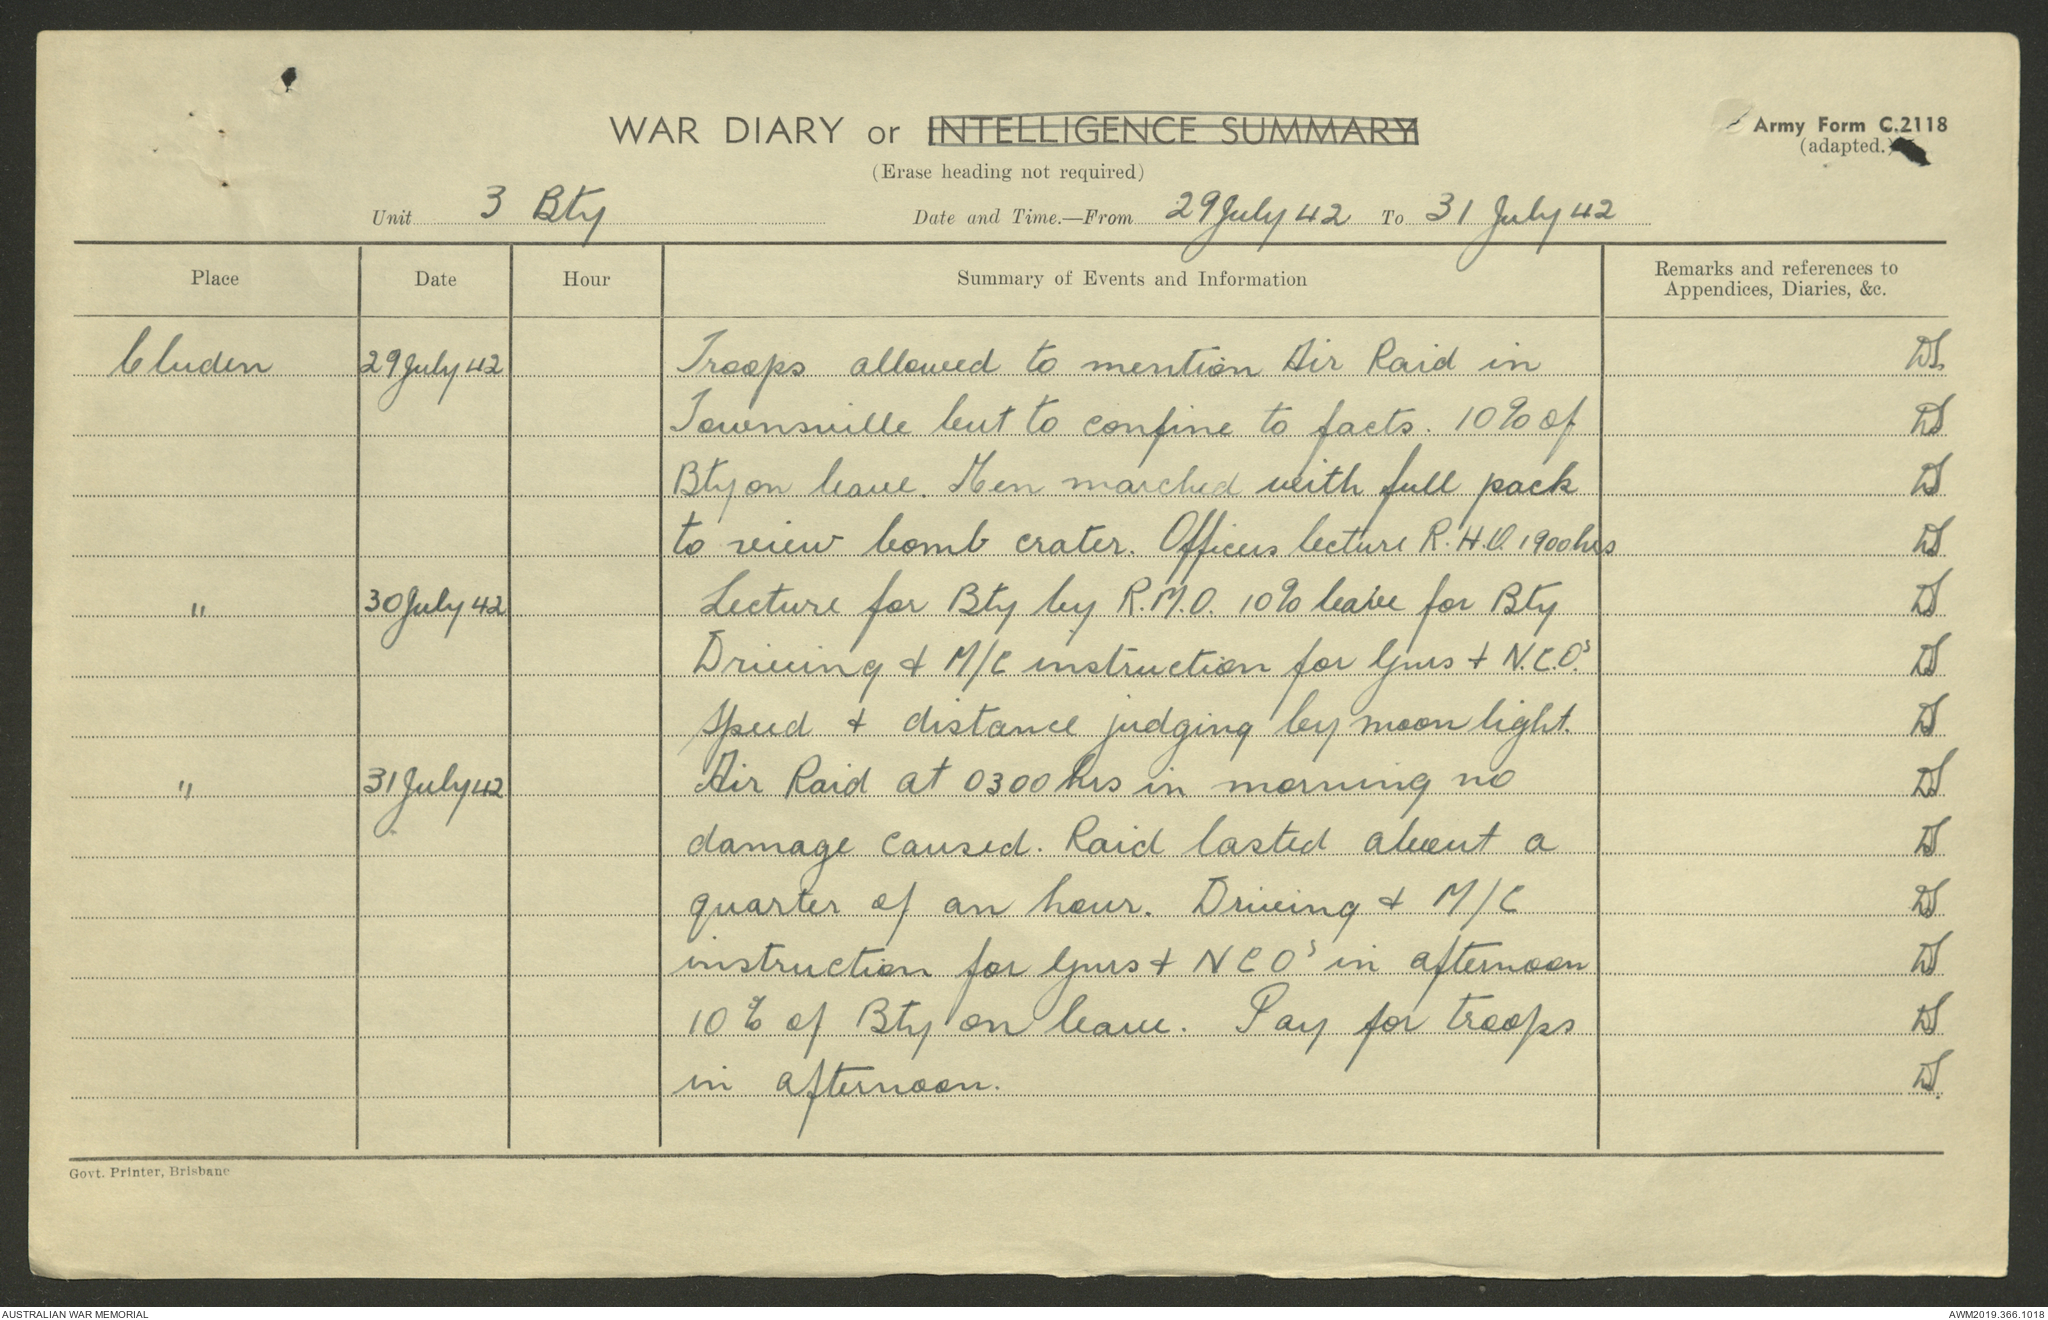 WAR DIARY or INTELLIGENCE SUMMARY
Army Form C.2118
(adapted.)
(Erase heading not required)
Unit 3 Bty Date and Time.—From 29 July 42 To 31 July 42
Place Date Hour Summary of Events and Information Remarks and references to
Appendices, Diaries, &c.
Cluden 29 July 42 Troops allowed to mention Air Raid in DS.
Townsville but to confine to facts. 10% of DS
Bty on leave. Men marched with full pack DS
to view bomb crater. Officers lecture R.H.Q. 1900 hrs DS
" 30 July 42 Lecture for Bty by R.M.O. 10% leave for Bty DS
Driving & M/C instruction for Gnrs + N.C.O.s DS
Speed + distance judging by moon light. DS
" 31 July 42 Air Raid at 0300 hrs in morning no DS
damage caused. Raid lasted about a DS
quarter of an hour. Driving & M/C DS
instruction for Gnrs + NCOs in afternoon DS
10% of Bty on leave. Pay for troops DS
in afternoon. DS.
Govt. Printer, Brisbane
AUSTRALIAN WAR MEMORIAL AWM2019.366.1018